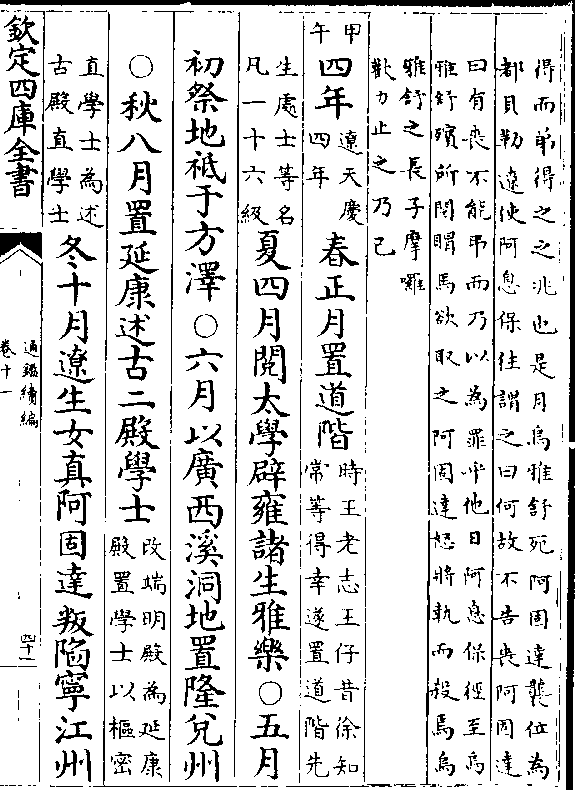 得而弟得之之兆也是月烏雅舒死阿固達襲位為
都貝勒遼使阿息保往謂之曰何故不告喪阿固達
曰有喪不能弔而乃以為罪乎他日阿息保徑至烏
雅舒殯所閱賵馬欲取之阿固達怒將執而殺焉烏
雅舒之長子摩囉
歡力止之乃已
甲午
四年
遼天慶
四年
春正月置道階
時王老志王仔昔徐知
常等得幸遂置道階先
生處士等名
凡一十六級
夏四月閱太學辟雍諸生雅樂○五月
初祭地祗于方澤○六月以廣西溪洞地置隆兌州
○秋八月置延康述古二殿學士
改端明殿為延康
殿置學士以樞密
直學士為述
古殿直學士
冬十月遼生女真阿固達叛陷寧江州
欽定四庫全書
通鑑續編
卷十一
四十一